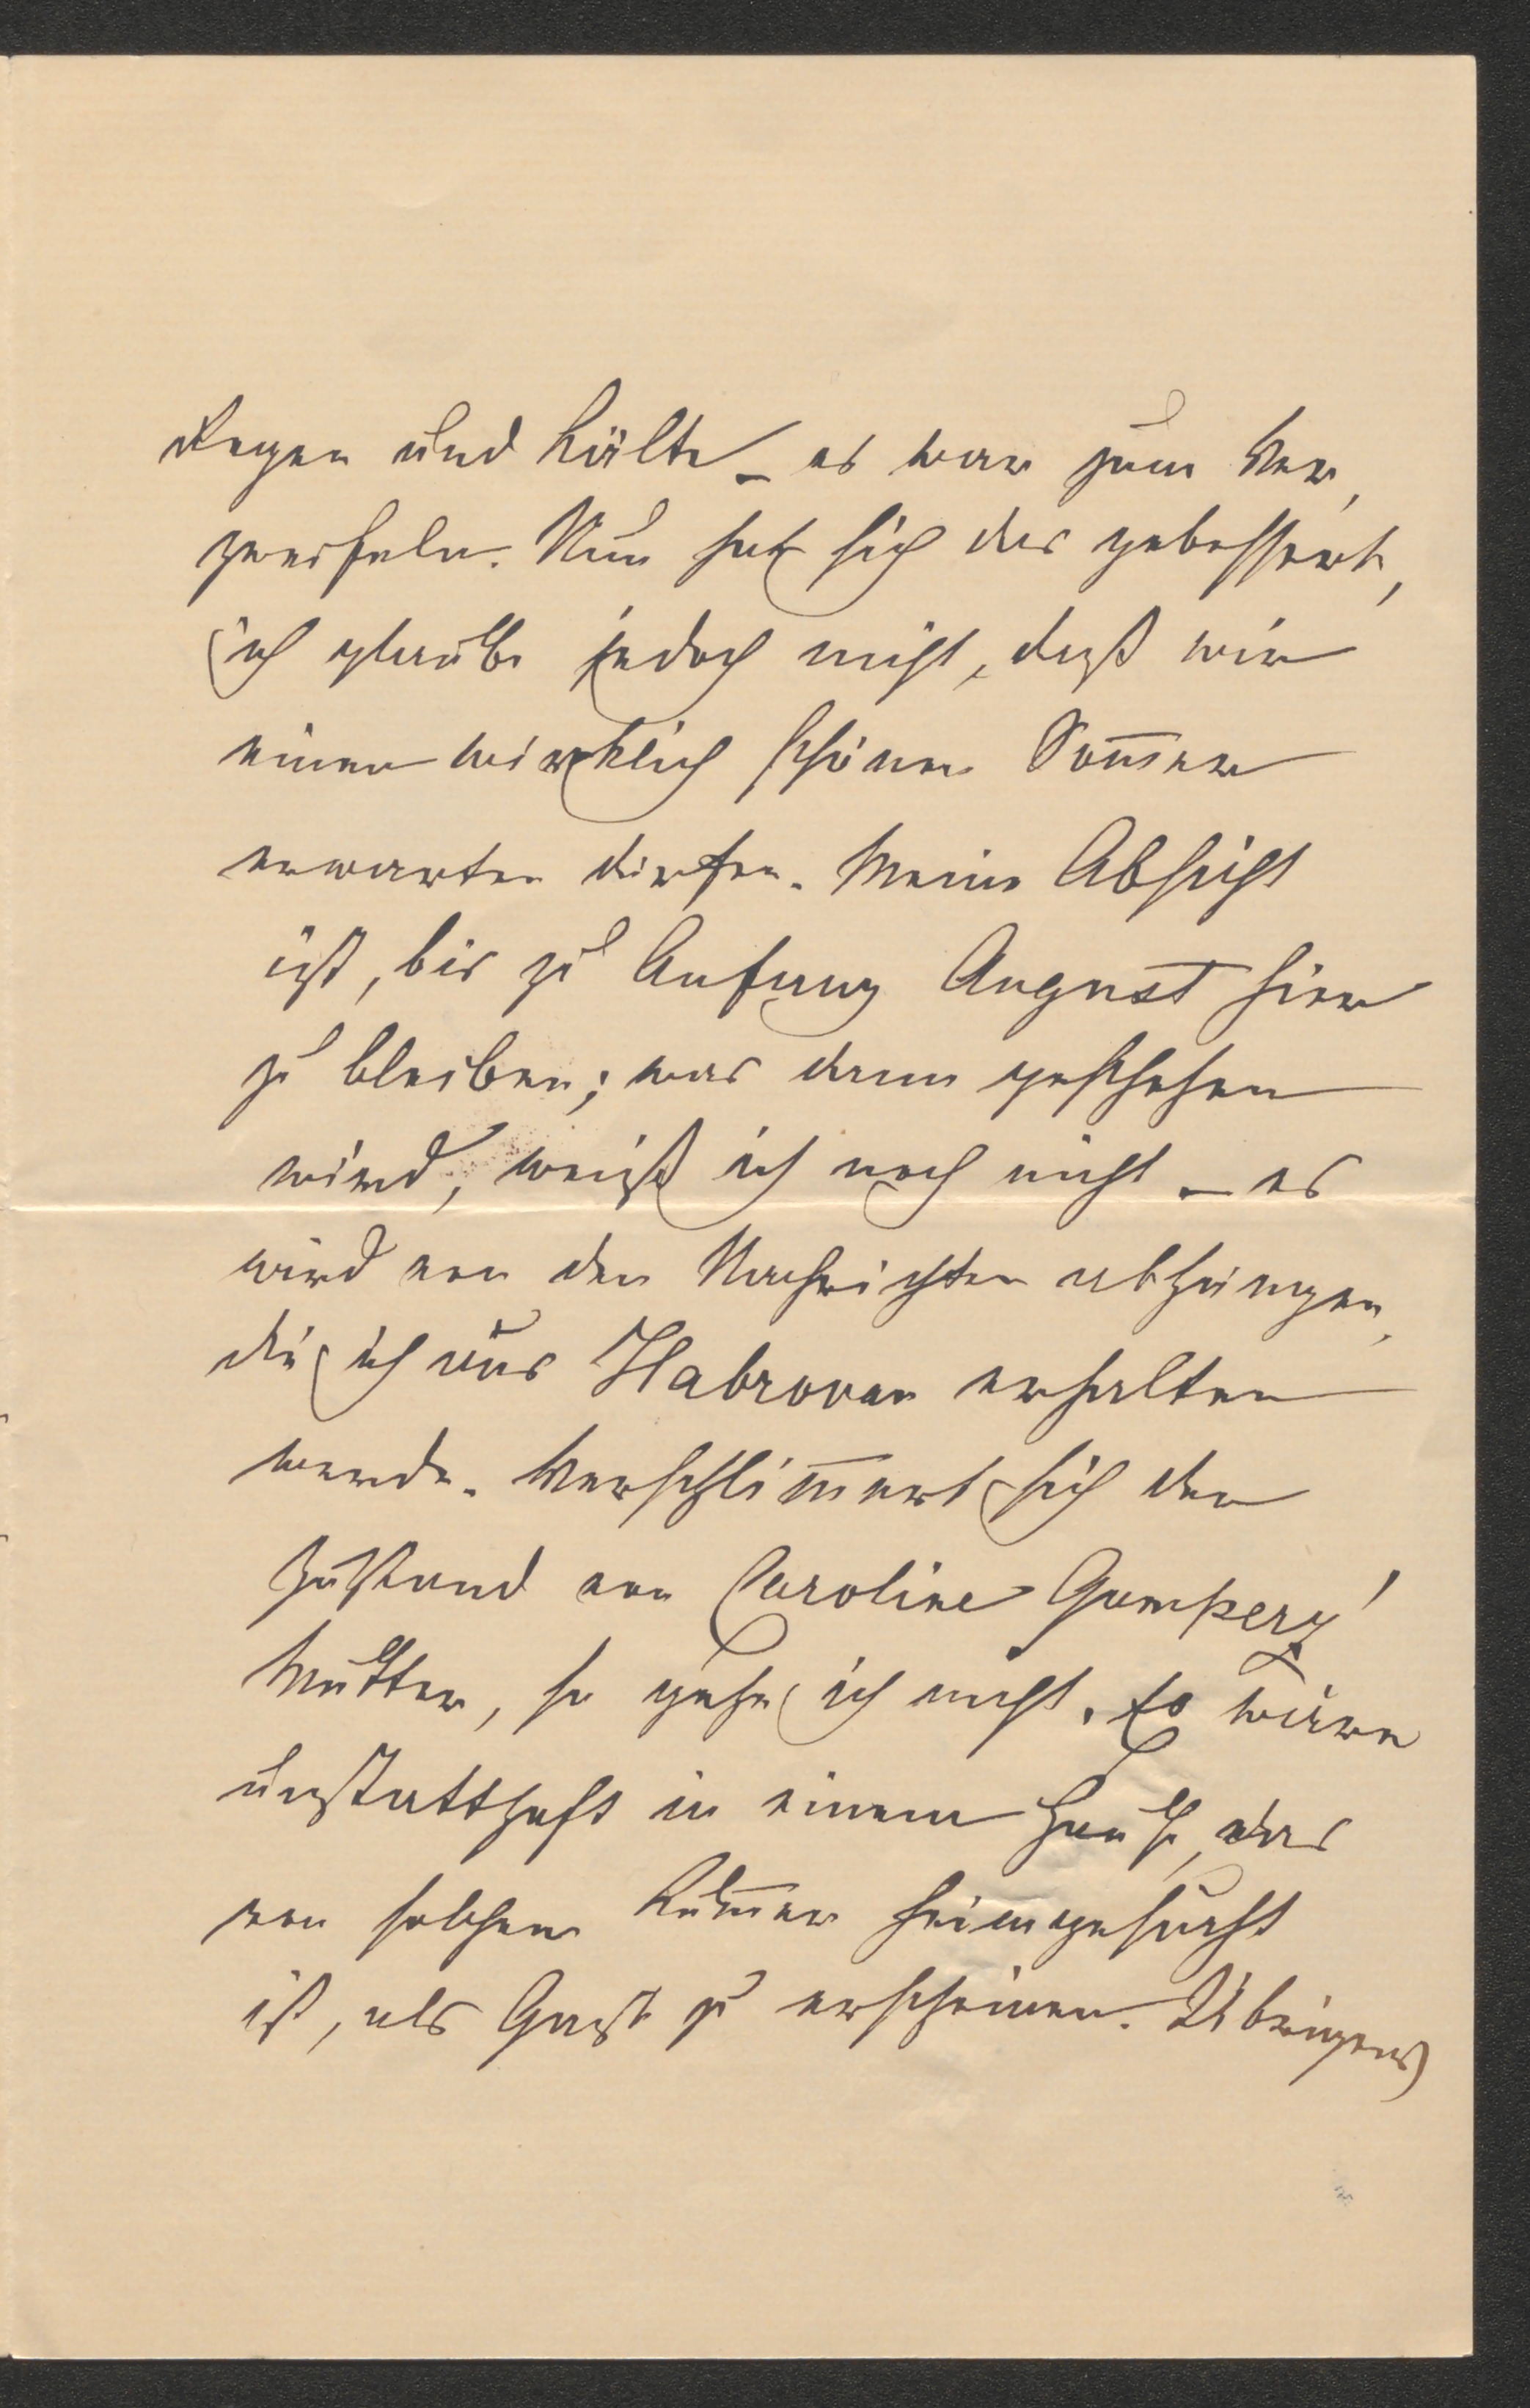 Regen und Kälte – es war zum Ver-
zweifeln. Nun hat sich das gebessert,
ich glaube jedoch nicht, daß wir
einen wirklich schönen Som̅er
erwarten dürfen. Meine Absicht
ist, bis zu Anfang August hier
zu bleiben; was dann geschehen
wird, weiß ich noch nicht – es
wird von den Nachrichten abhängen,
die ich aus Habrovan erhalten
werde. Verschlim̅ert sich der
Zustand von Caroline Gomperz'
Mutter, so gehe ich nicht. Es wäre
unstatthaft in einem Hause, das
von solchem Kum̅er heimgesucht
ist, als Gast zu erscheinen. Übrigens